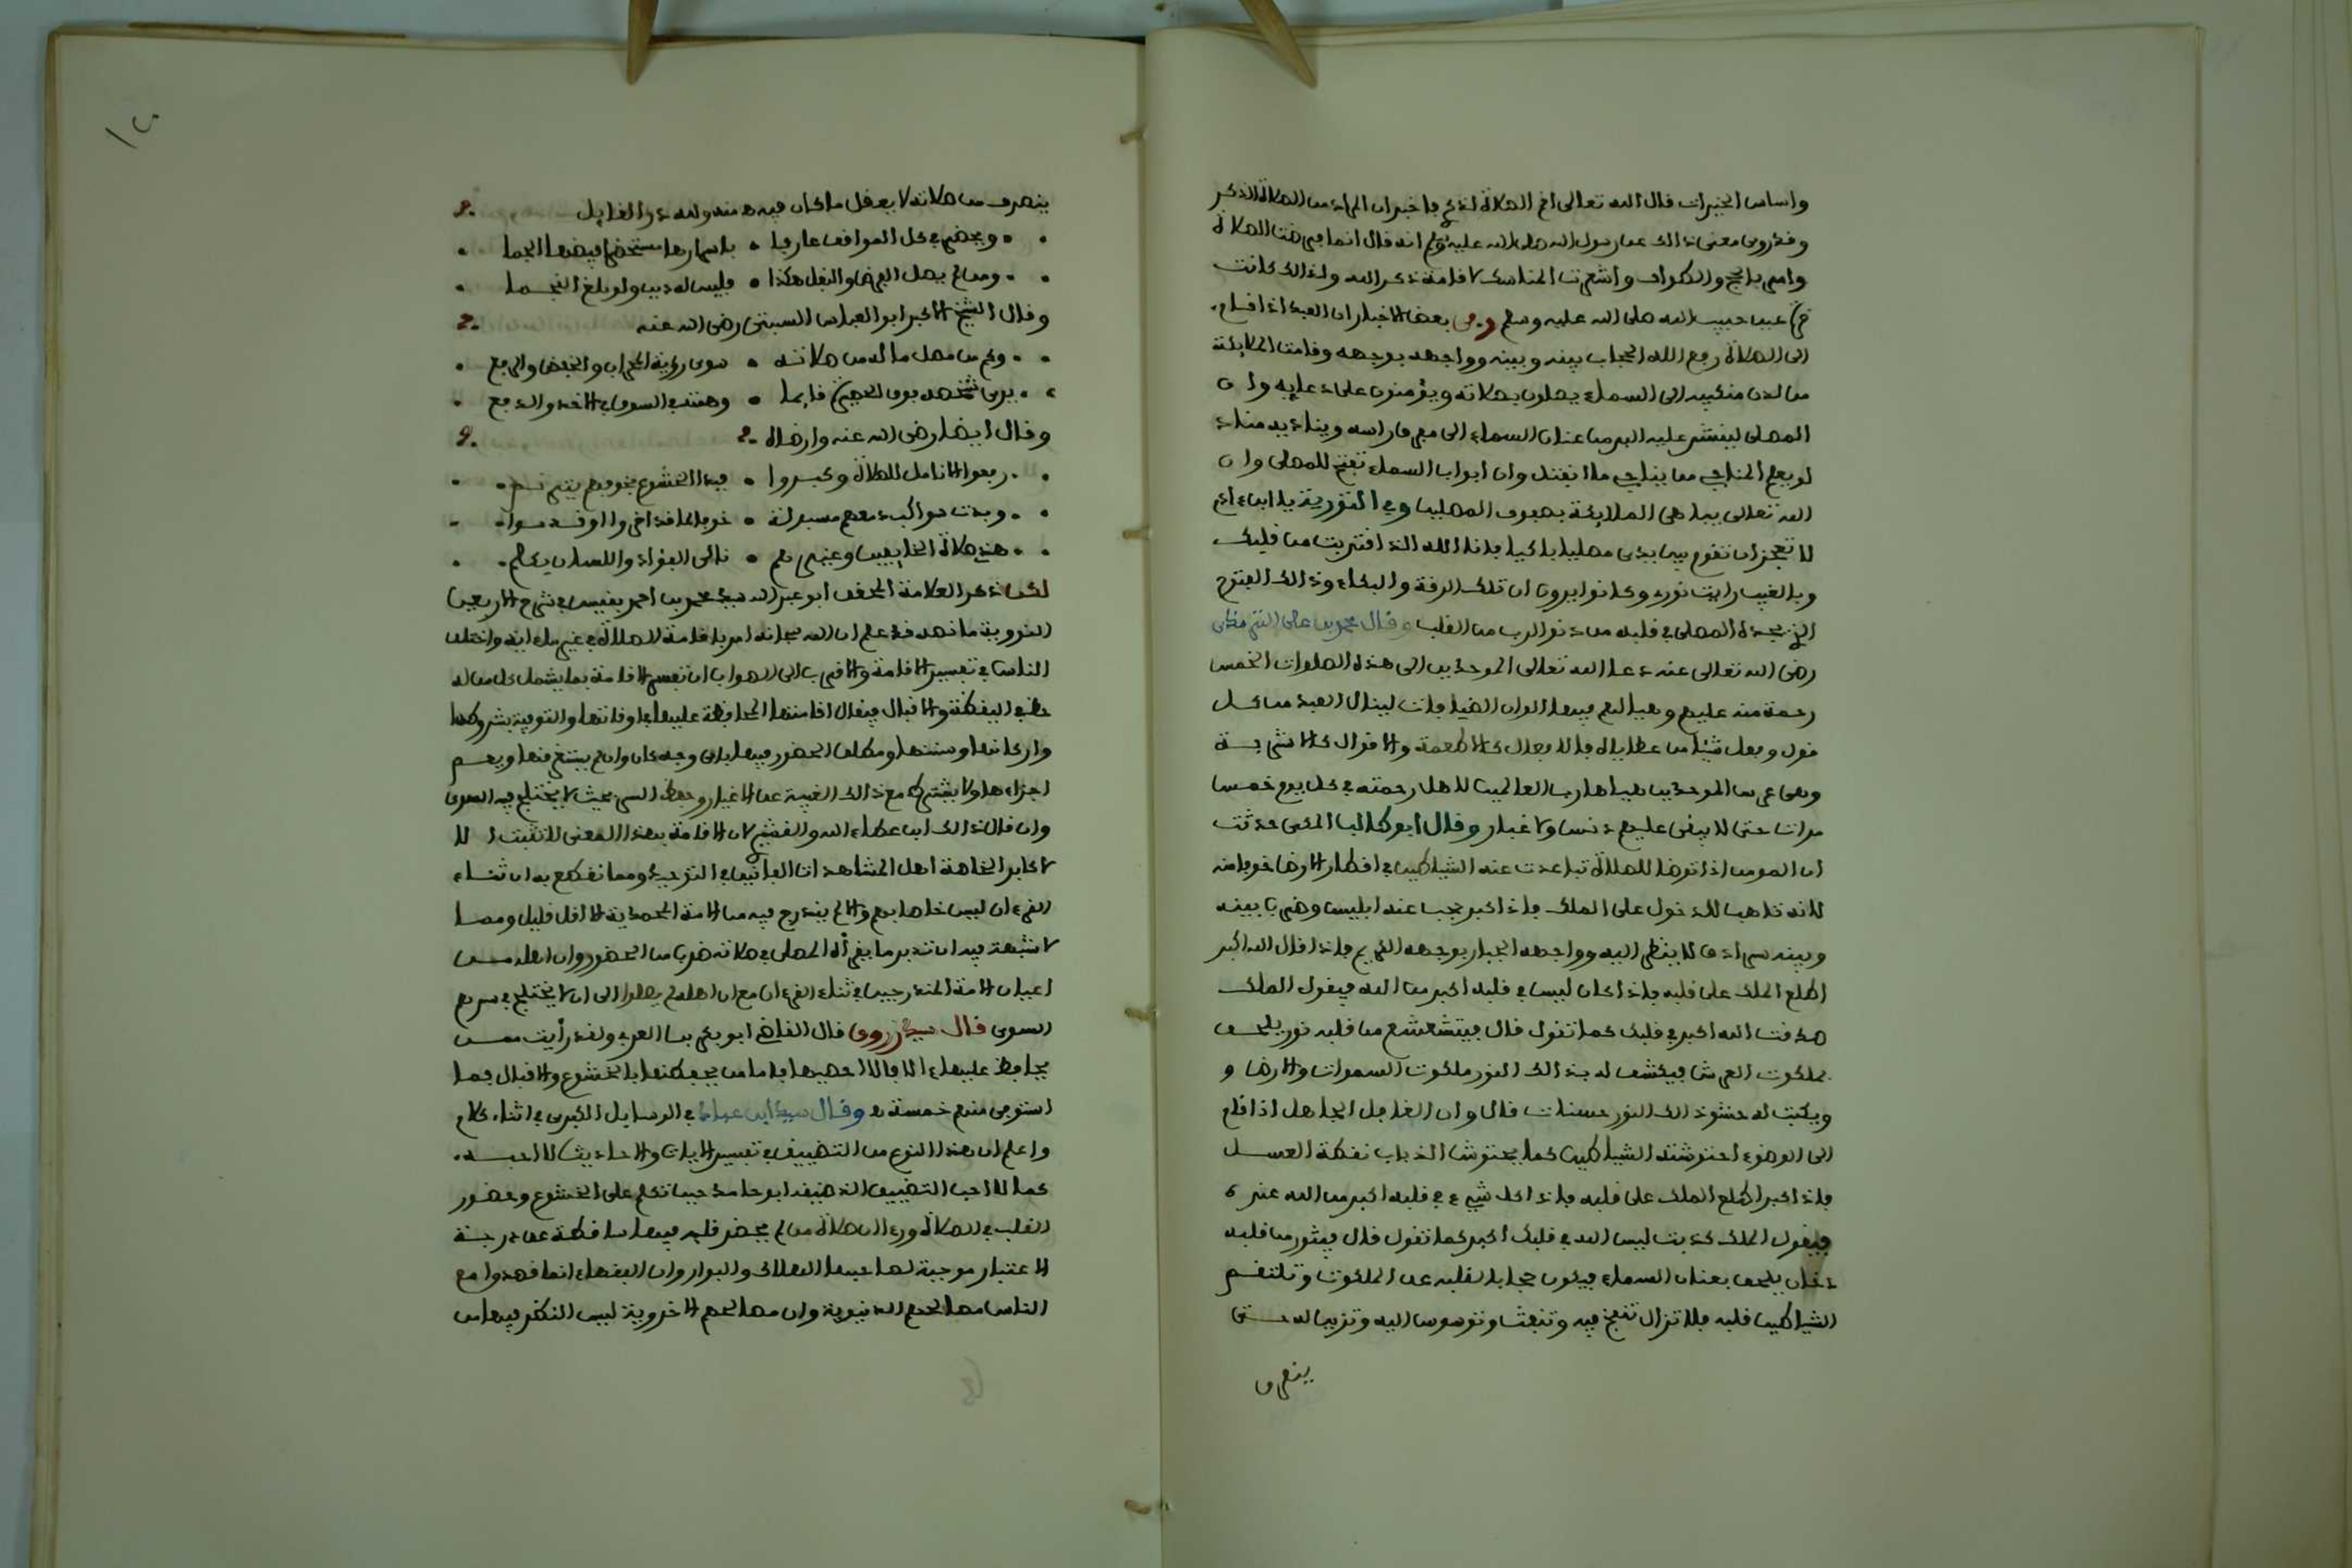 واساس الخيرات قال الله تعالى اقم الصلاة لذكري فاخبر ان المراد من الصلاة الذكر
وقد روي معنى ذالك عن رسول الله صلى الله عليه وسلم انه قال انما فرضت الصلاة
وامر بالحج والطواف واشعرت المناسك لاقامة ذكر الله ولذالك كانت
قرة عين حبيب الله صلى الله عليه وسلم وفي بعض الاخبار ان العبد اذا قام
الى الصلاة رفع الله الحجاب بينه وبينه وواجهه بوجهه وقامت الملايكة
من لدن منكبيه الى السماء يصلون بصلاته ويؤمنون على دعايه وان
المصلى لينشر عليه البر من عنان السماء الى مفرق راسه ويناديه مناد
لو يعلم المناجي من يناجي ما انفتل وان ابواب السماء تفتح للمصلى وان
الله تعالى يباهي الملايكة بصفوف المصلين وفي التورية يا ابن ءادم
لا تعجز ان تقوم بين يدي مصليا باكيا فانا الله الذي اقتربت من قلبك
وبالغيب رايت نوري وكانوا يرون ان تلك الرقة والبكاء وذالك الفتوح
الذي يجده المصلى في قلبه من دنو الرب من القلب وقال محمد بن علي الترمذي
رضي الله تعالى عنه دعا الله تعالى الموحدين الى هذه الصلوات الخمس
رحمة منه عليهم وهيا لهم فيها الوان الضيافات لينال العبد من كل
قول وفعل شيئا من عطاياه فالافعال كالاطعمة والاقوال كالاشربة
وهي عرس الموحدين هياها رب العالمين لاهل رحمته في كل يوم خمس
مرات حتى لا يبقى عليهم دنس ولا غبار وقال ابو طالب المكي حدثت
ان المومن اذا توضا للصلاة تباعدت عنه الشياطين في اقطار الارض خوفا منه
لانه تاهب للدخول على الملك فاذا كبر حجب عنه ابليس وضرب بينه
وبينه سرادق لا ينظر اليه وواجهه الجبار بوجهه الكريم فاذا قال الله اكبر
اطلع الملك على قلبه فاذا كان ليس في قلبه اكبر من الله فيقول الملك
صدقت الله اكبر في قلبك كما تقول قال فيتشعشع من قلبه نور يلحق
بملكوت العرش فيكشف له بذالك النور ملكوت السموات والارض و
ويكتب له حشو ذالك النور حسنات قال وان الغافل الجاهل اذا قام
الى الوضوء احتوشته الشياطين كما يحتوش الذباب نقطة العسل
فاذا كبر اطلع الملك على قلبه فاذا كل شيء في قلبه اكبر من الله عنده
فيقول الملك كذبت ليس الله في قلبك اكبر كما تقول قال فيثور من قلبه
دخان يلحق بعنان السماء فيكون حجابا لقلبه عن الملكوت وتلتقم
الشياطين قلبه فلا تزال تنفخ فيه وتنفث وتوسوس اليه وتزين له حتى
ينصرف
ينصرف من صلاته لا يعقل ما كان فيه ه منه ولله در القايل
ويحضر في كل المواقف عارفا • باسرارها مستحضرا فيضها الجما
ومن لم يصل الفرض والنفل هكذا • فليس له دين ولو بلغ النجما
وقال الشيخ الاكبر ابو العباس السبتي رضي الله عنه
وكم من مصل ما له من صلاته • سوى رؤية المحراب والخفض والرفع
يرى شخصه فوق الحصير قايما • وهمته في السوق في الاخذ والدفع
وقال ايضا رضي الله عنه وارضاه
رفعوا الانامل للصلاة وكبروا • فبدا الخشوع بخوفهم يترنم
وبدت سواكب دمعهم مسبولة •
هذي صلاة الخايفين وغيرهم • ناءى الفؤاد واللسان يكلم
لكن ذكر العلامة المحقق ابو عبد الله سيدي محمد بن احمد بنيس في شرح الاربعين
النووية ما نصه قد علم ان الله سبحانه امر باقامة الصلاة في غير ما ءاية واختلف
الناس في تفسير الاقامة والاقرب الى الصواب ان تفسر الاقامة بما يشمل كل من له
حظ في اليقظة والاقبال فيقال اقامتها المحافظة عليها باوقاتها والتوفية بشروطها
واركانها وسننها ومطلق الحضور فيها باي وجه كان وان لم يستغرقها ويعم
اجزاءها ولا يشترط مع ذالك الغيبة عن الاغيار وحفظ السر بحيث لا يختلج فيه السوى
وان قال ذالك ابن عطاء الله والقشيري لان الاقامة بهذا المعنى لا تثبت الا
لاكابر الخاصة اهل المشاهدات الغايبين في التوحيد ومما نقطع به ان ثناء
القرءان ليس خاصا بهم والا لم يندرج فيه من الامة المحمدية الا اقل قليل ومما
لا شبهة فيه ان تدبر ما يقرأه المصلى في صلاته ضرب من الحضور وان اهله من
اعيان الامة المندرجين في ثناء القرءان مع ان اهله لم يصلوا الى ان لا يختلج في سرهم
السوى قال سيدي زروق قال القاضي ابو بكر بن العربي ولقد رأيت ممن
يحافظ عليها ءالافا لا احصيها فاما من يحفظها بالخشوع والاقبال فما
استوفي منهم خمسة ه وقال سيدي ابن عباد في الرسايل الكبرى في اثناء كلام
واعلم ان هذا النوع من التضييق في تفسير الايات والاحاديث لا احبه
كما لا احب التضييق الذي ضيقه ابو حامد حين تكلم على الخشوع وحضور
القلب في الصلاة ورءا ان صلاة من لم يحضر قلبه فيها ساقطة عن درجة
الاعتبار موجبة لصاحبها الهلاك والبوار وان الفقهاء انما قصدوا مع
الناس مصالحهم الدنيوية وان مصالحهم الاخروية ليس النظر فيها من